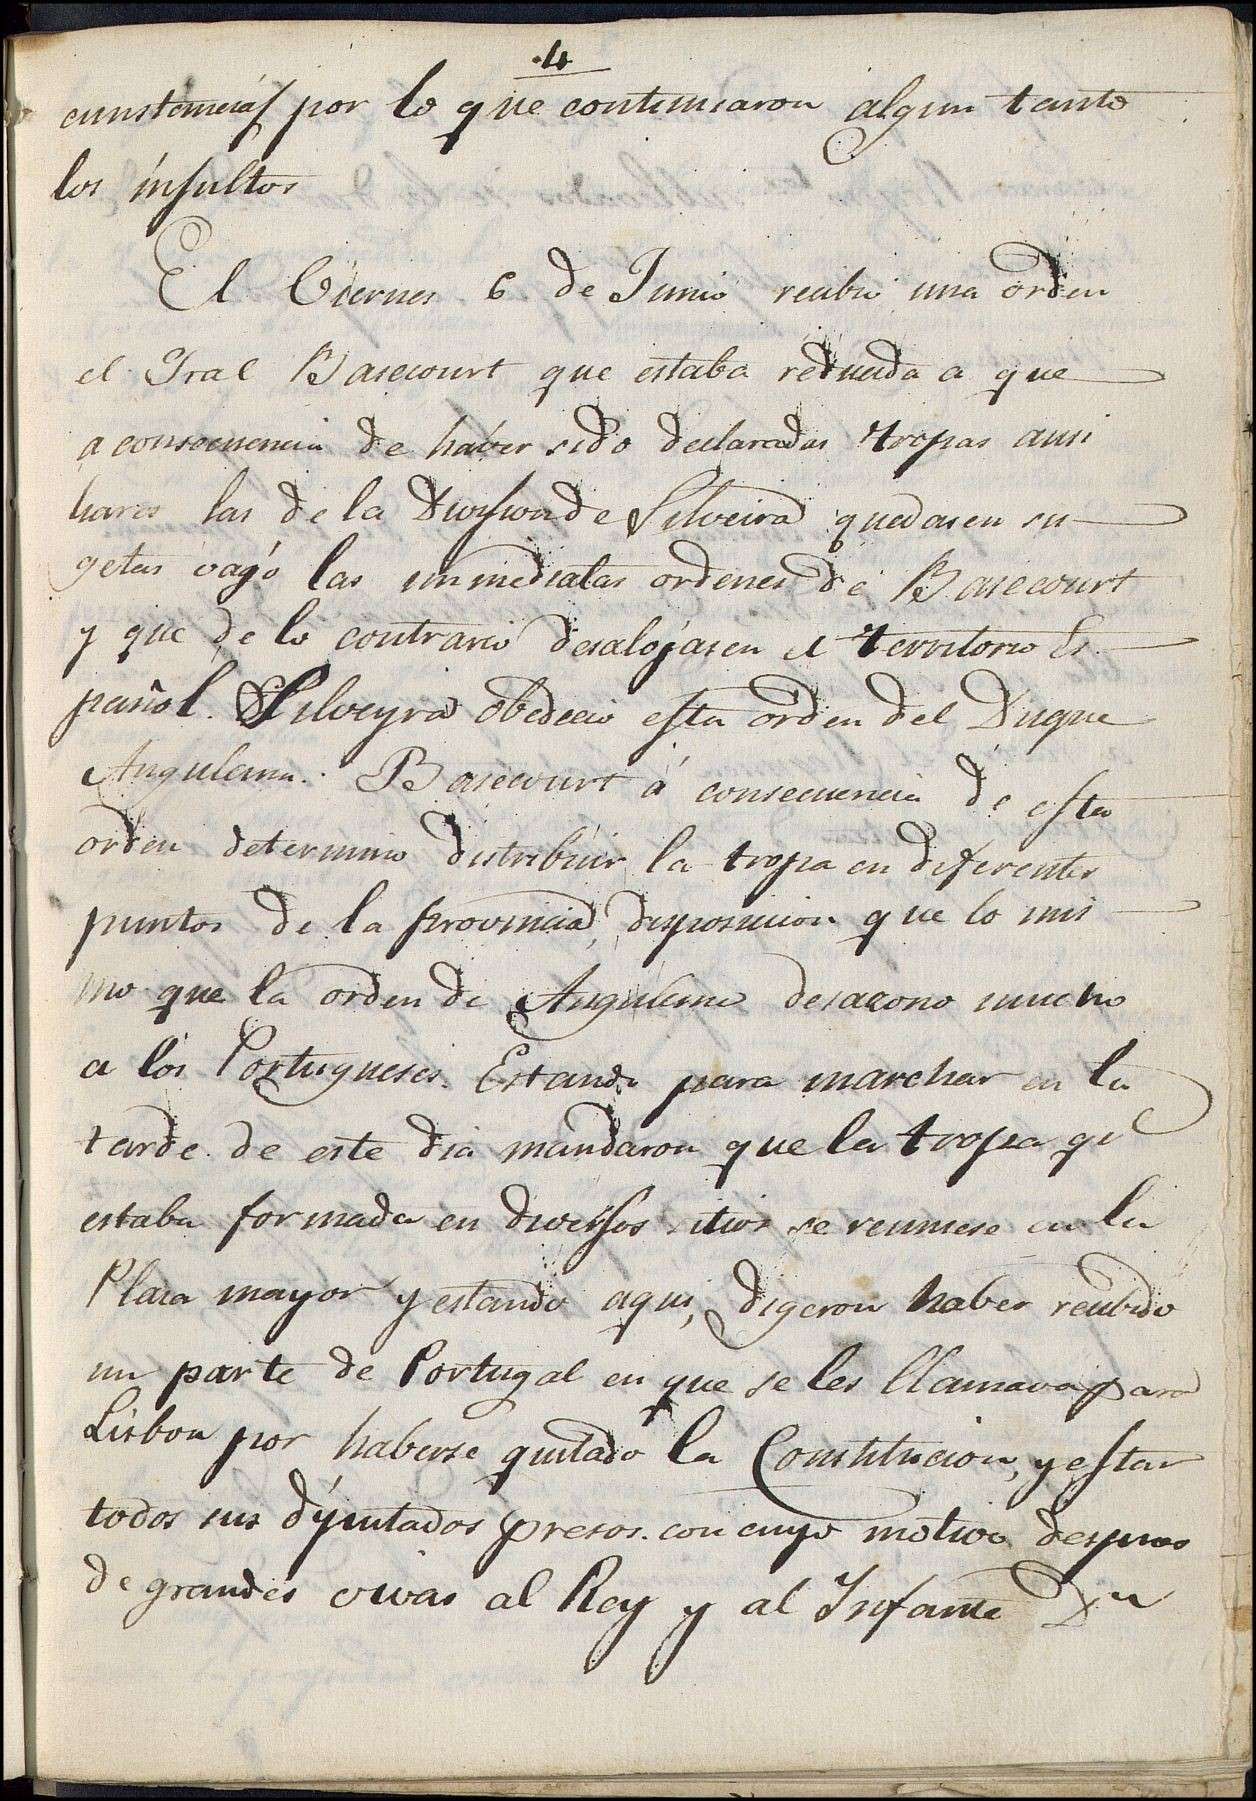 4
cunstancias por lo que continuaron algun tanto
los insultos
El Viernes 6 de Junio recibio una orden
el Gral Basecourt que estaba reducida a que
a consecuencia de haber sido declaradas tropas ausi
liares las de la Division de Silveira quedasen su
getas vajo las inmediatas ordenes de Basecourt
y que de lo contrario desalojasen el territorio Es
pañol. Silveyra obedecio esta orden del Duque
Angulema. Basecourt á consecuencia de esta
orden determino distribuir la tropa en diferentes
puntos de la provincia, disposicion que lo mis
mo que la orden de Angulema desazono mucho
a los Portugueses. Estando para marchar en la
tarde de este dia mandaron que la tropa qe
estaba formada en diversos sitios se reuniese en la
Plaza mayor y estando aqui, digeron haber recibido
un parte de Portugal en que se les llamava para
Lisboa por haberse quitado la Constitucion, y estar
todos sus diputados presos. con cuyo motivo despues
de grandes vivas al Rey y al Infante Dn